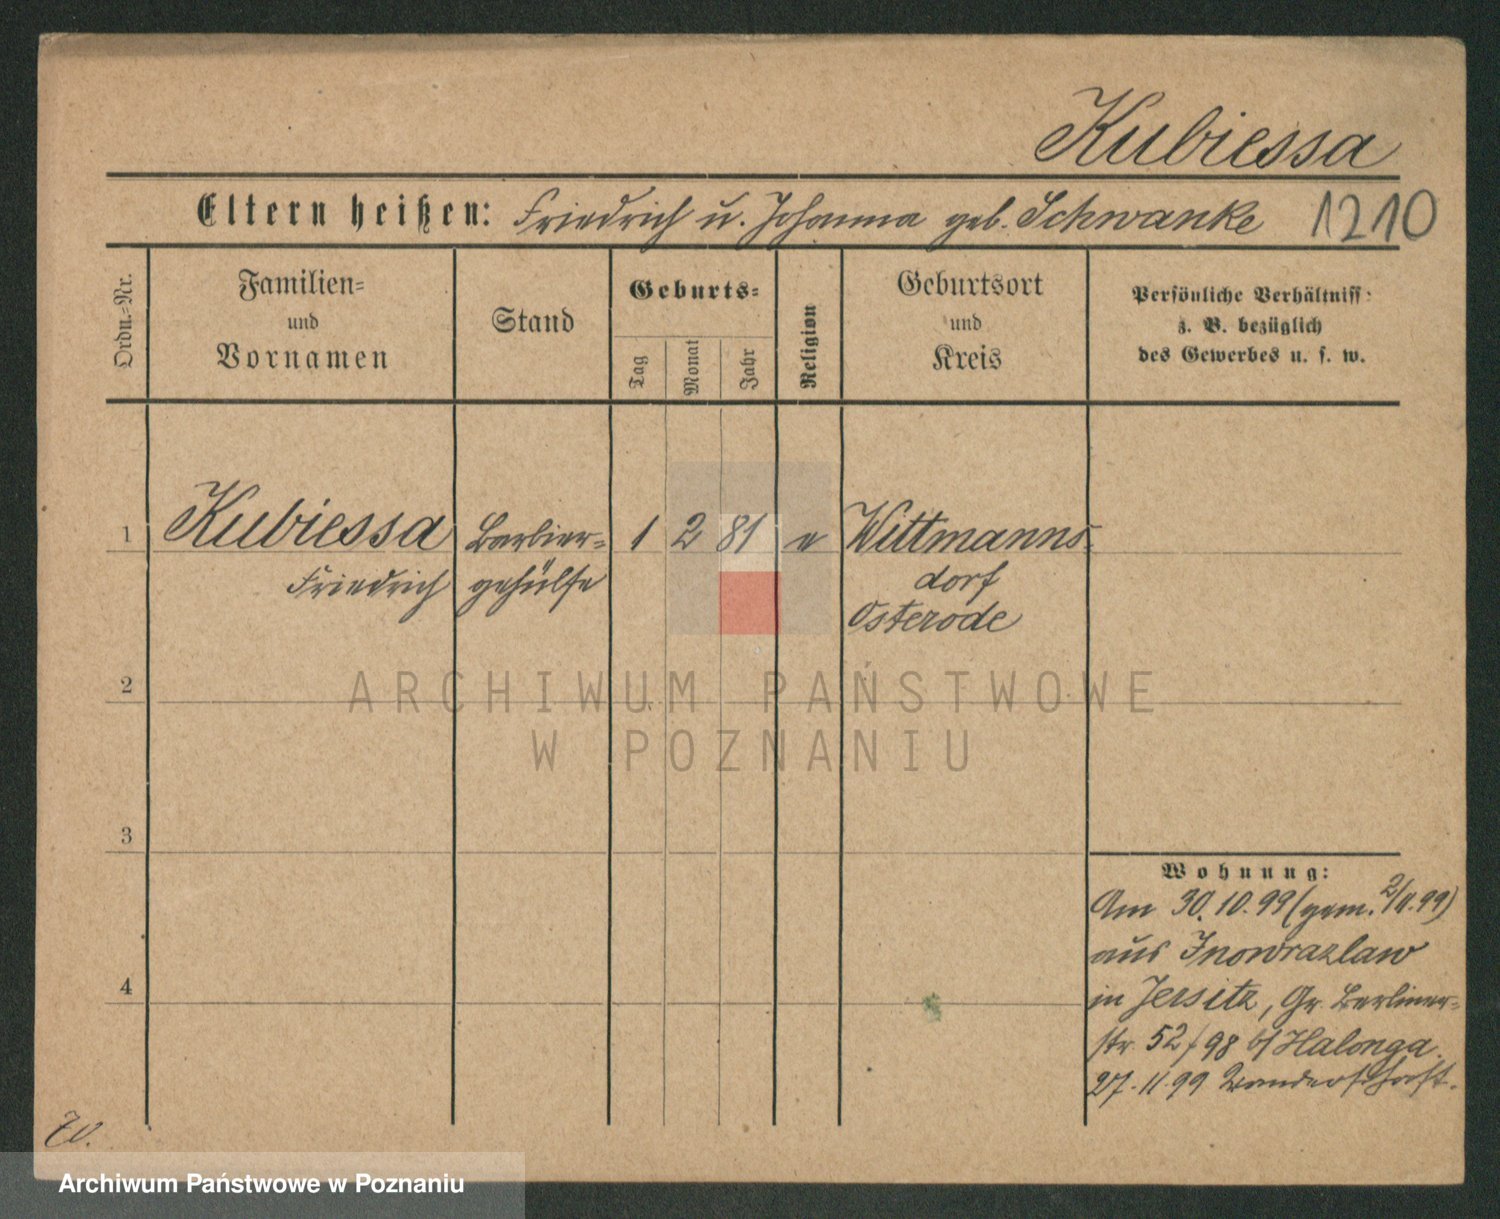 Kubiessa
Eltern heißen: Friedrich u. Johanna geb. Schwanke 1210
Ordn.-Nr.
Familien-
und
Vornamen
Stand
Geburts-
Tag
Monat
Jahr
Religion
Geburtsort
und
Kreis
Persönliche Verhältniss:
z. B. bezüglich
des Gewerbes u. s. w.
1 Kubiessa Barbier- 1 2 81 e Wittmanns-
Friedrich gehülfe dorf
Osterode
2
ARCHIWUM PAŃSTWOWE
W POZNANIU
3
Wohnung:
Am 30.10.99 (gem. 2/11.99)
aus Inowrazlaw
4
in Jersitz, Gr. Berliner-
str 52/98 b/ Halonga.
27.11.99 Wanderschaft.
Archiwum Państwowe w Poznaniu